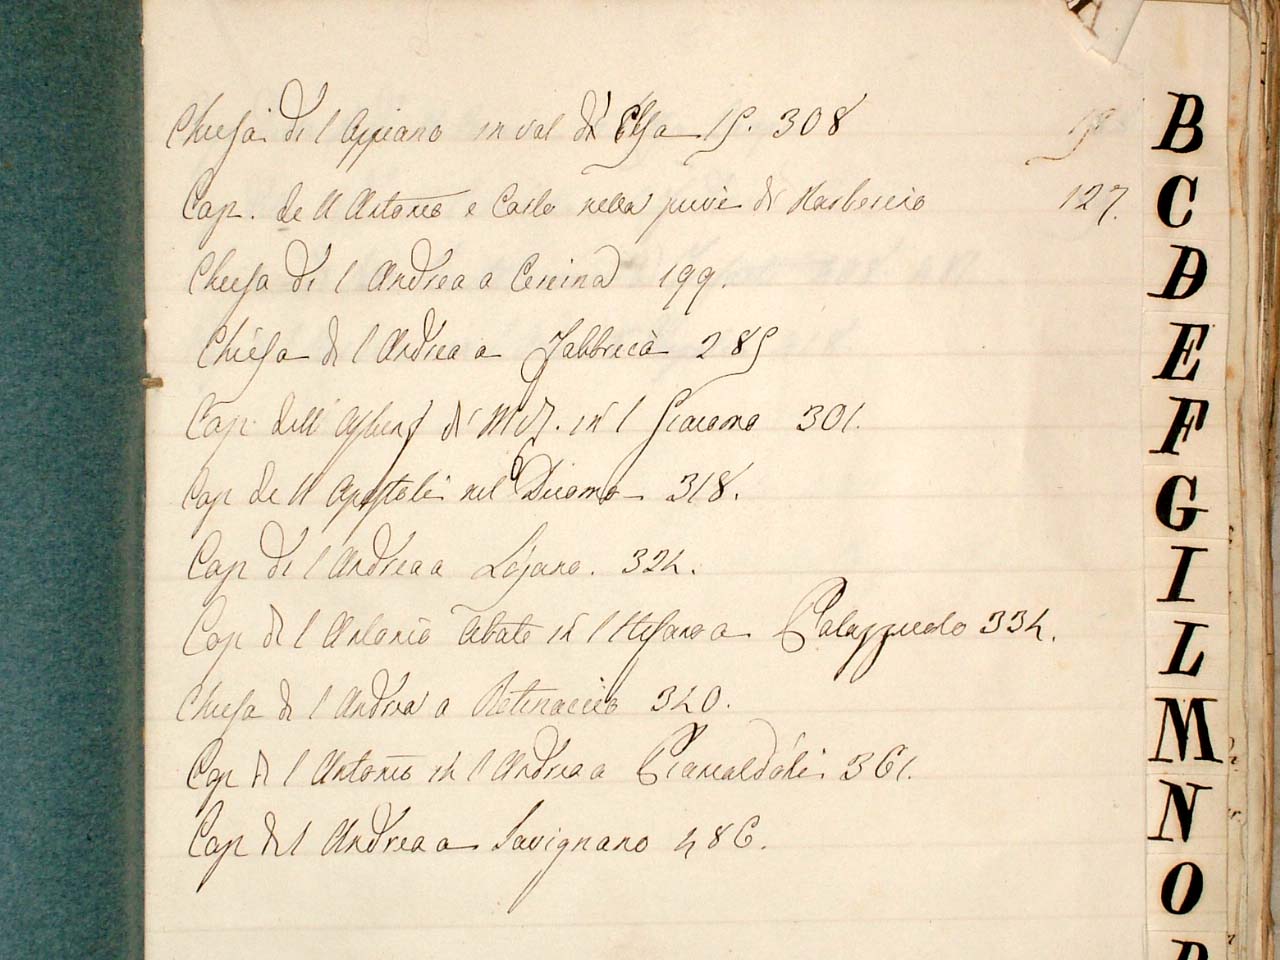 A
Chiesa di S Appiano in val di Elsa 15. 308
Cap. de SS Antonio e Carlo nella pieve di Barberino 127.
Chiesa di S Andrea a Cercina 199.
Chiesa di S Andrea a Fabbrica 285
Cap dell' di M. V. in S Giacomo 301.
Cap de SS Apostoli nel Duomo 318.
Cap di S Andrea a Lojano. 324.
Cap di S Antonio Abate in S Stefano a Palazzuolo 334.
Chiesa di S Andrea a 340.
Cap di S Antonio in S Andrea a Camaldoli 361.
Cap di S Andrea a Savignano 486.
B
C
D
E
F
G
I
L
M
N
O
P